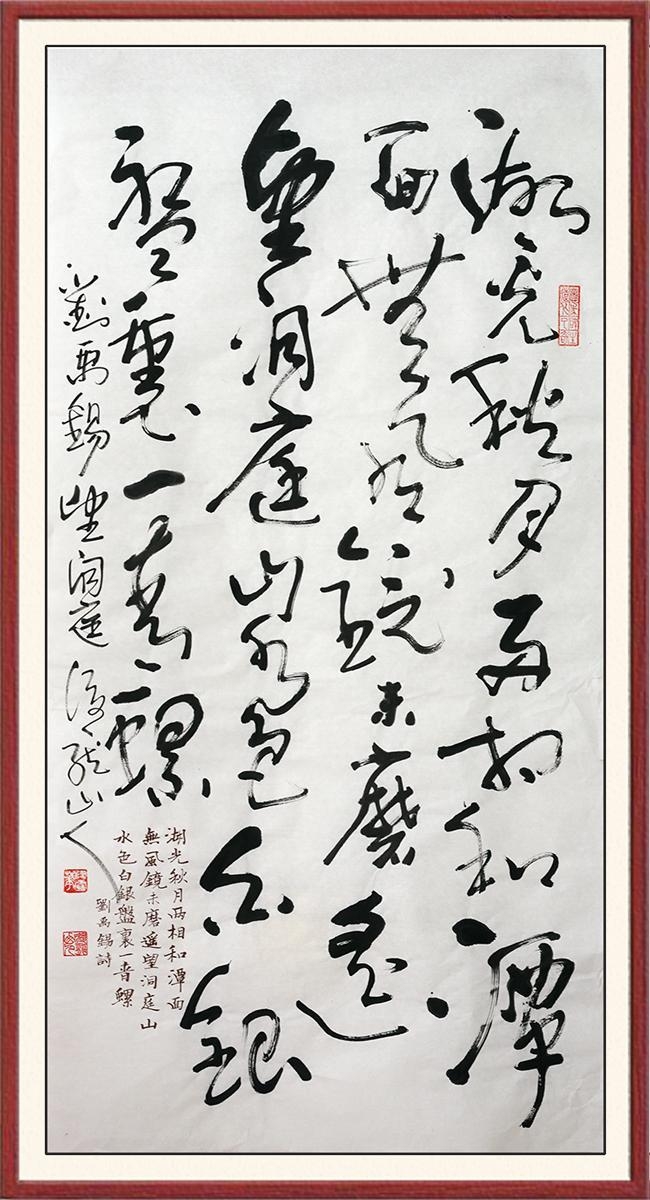 湖光秋月两相和潭
面無風鏡未磨遥
望洞庭山水色白銀
盤裏一青螺
劉禹錫望洞庭 山人
湖光秋月两相和潭面
無風鏡未磨遥望洞庭山
水色白銀盤裏一青螺
劉禹錫詩